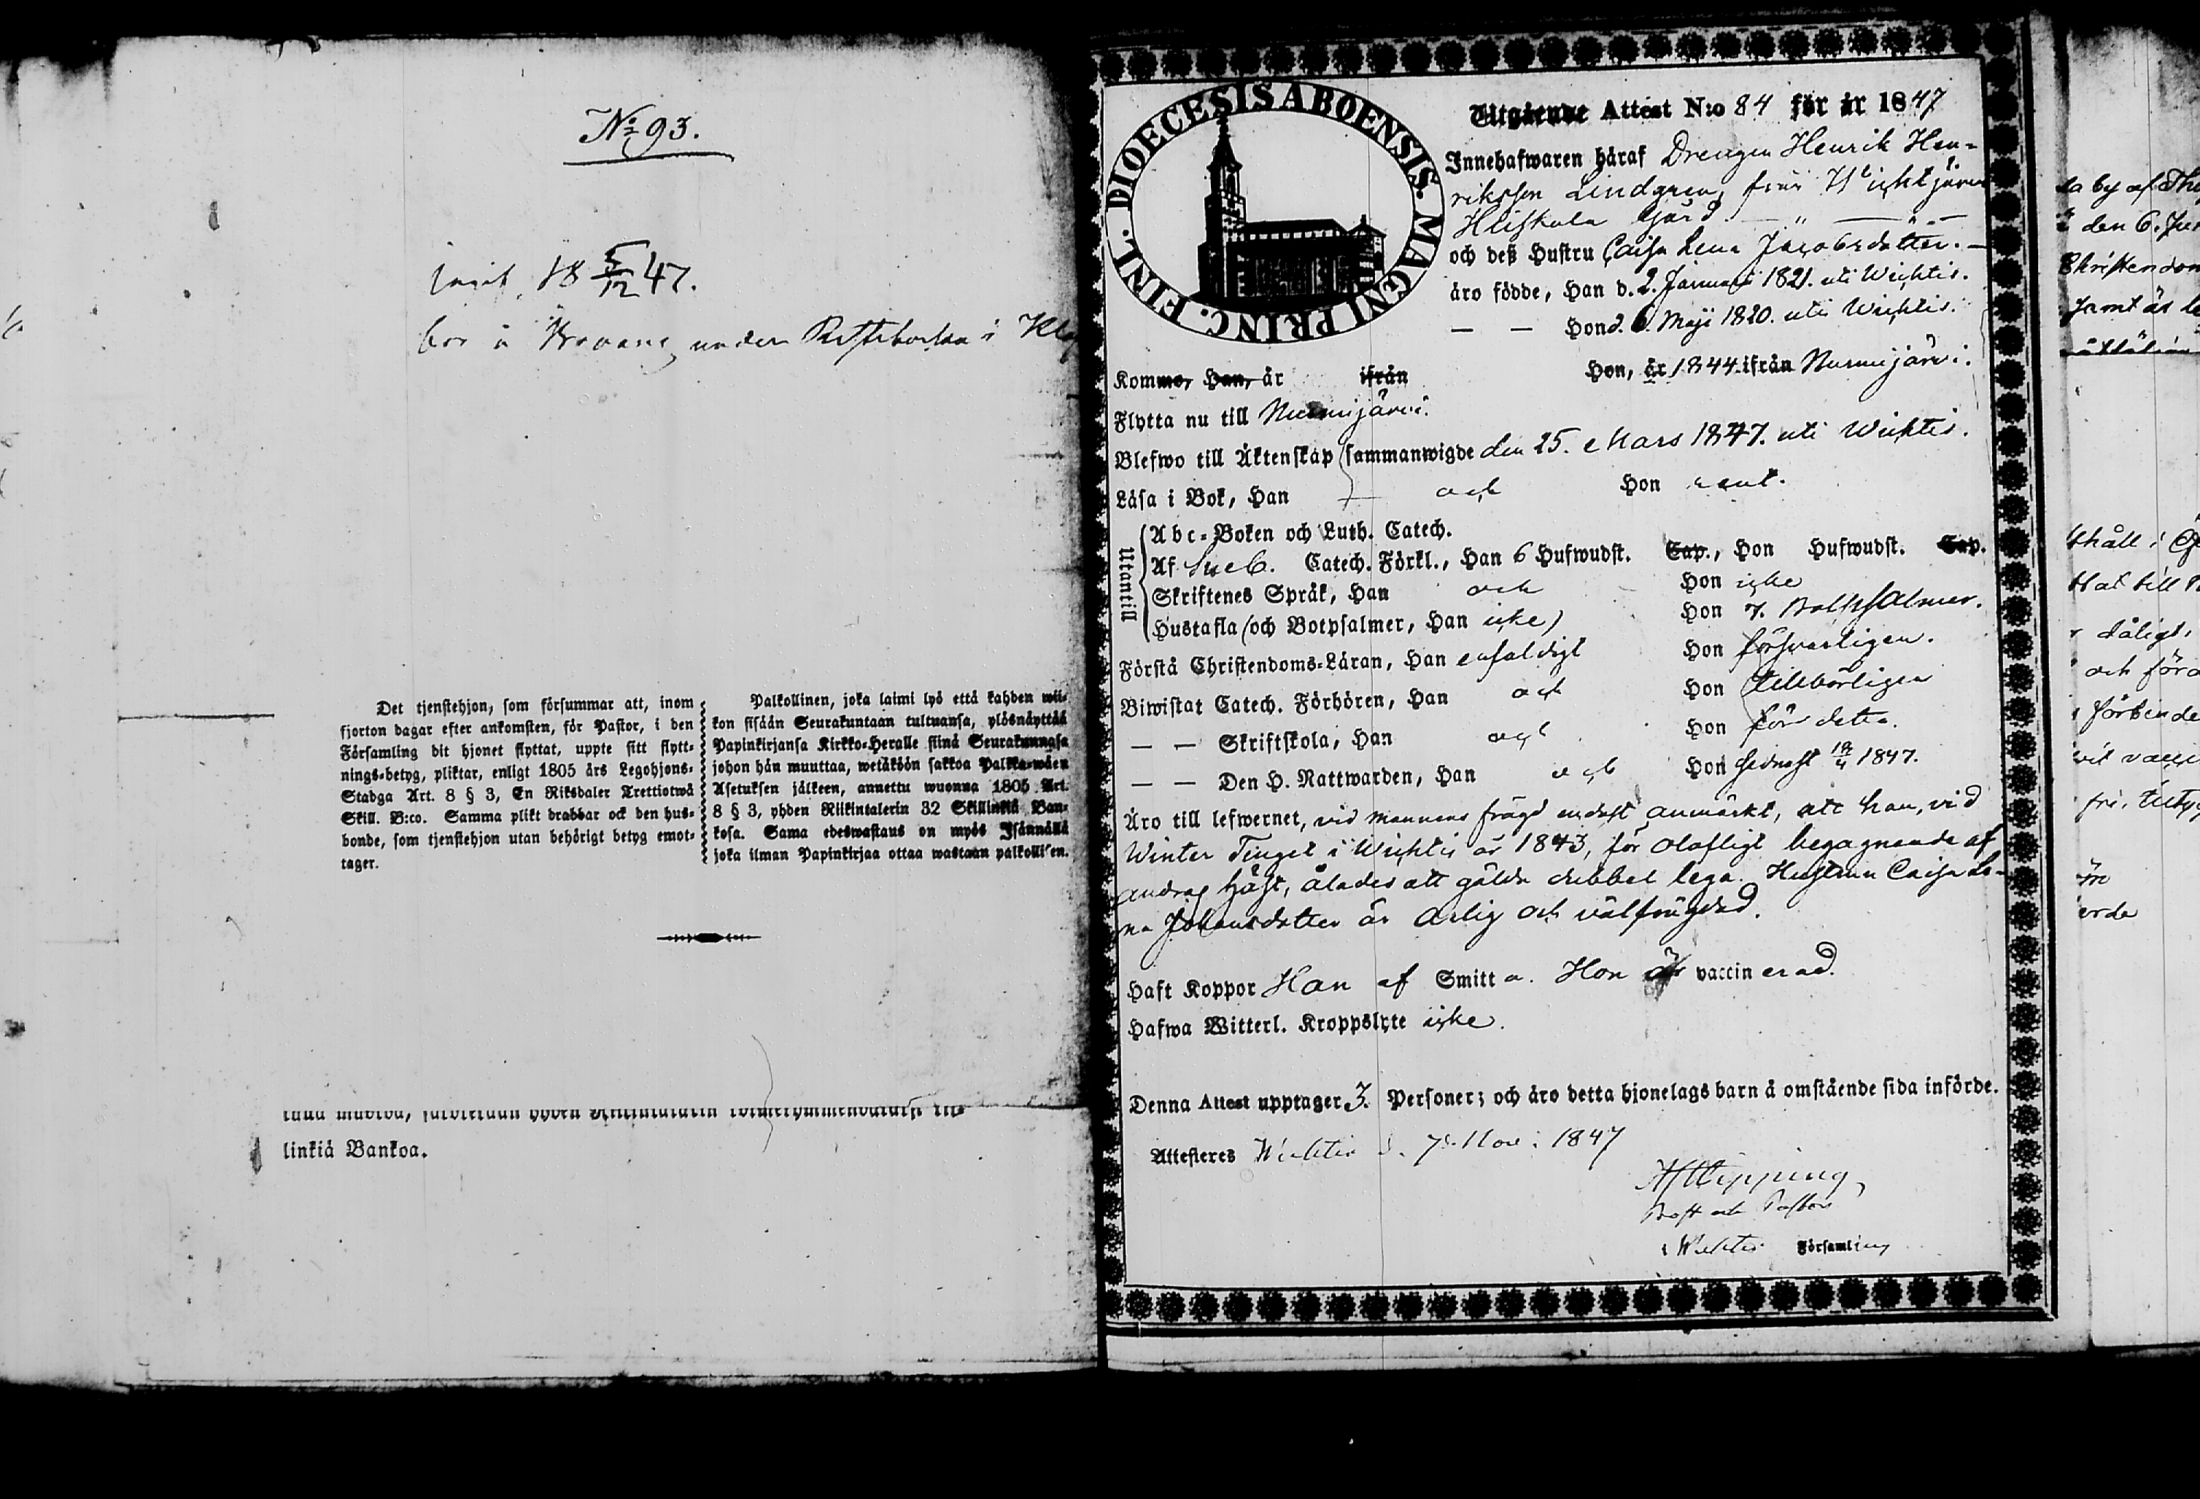 No 93.
18 5/12 47.
bor å under i
Det tjenstehjon, som försummar att, inom
fjorton dagar efter ankomsten, för Pastor, i den
Församling dit hjonet flyttat, uppte sitt flytt-
nings-betyg, pliktar, enligt 1805 års Legohjons-
Stadga Art. 8 § 3, En Riksdaler Trettiotwå
Skill. B:co. Samma plikt drabbar ock den hus-
bonde, som tjenstehjon utan behörigt betyg emot-
tager.
Palkollinen, joka laimi lyö että kahden wii-
kon sisään Seurakuntaan tultuansa, ylösnäyttää
Papinkirjansa Kirkko-Heralle siinä Seurakunnasa
johon hän muuttaa, wetäköön sakkoa Palkka-wäen
Asetuksen jälkeen, annettu wuonna 1805 Art.
8 § 3, yhden Riikintalerin 32 Skillinkiä Ban-
kosa. Sama edeswastaus on myös Isännällä
joka ilman Papinkirjaa ottaa wastaan palkollisen.
linkiä Bankoa.
FINL. DIOECESIS ABOENSIS. MAGNI PRINC.
Utgående Attest N:o 84 för år 1847
Innehafwaren häraf Drengen Henrik Hen-
riksson Lindgren från Wichtijärvi
Heiskala Gård
och deß Hustru Caisa Lena Jacobsdotter.
äro födde, Han d. 2. Januari 1821. uti Wichtis.
— — Hon d. 6. Maji 1820. uti Wichtis.
Kommo, Han, år ifrån Hon, år 1844 ifrån Nurmijärvi.
Flytta nu till Nurmijärvi.
Blefwo till Äktenskap sammanwigde den 25. Mars 1847. uti Wichtis.
Läsa i Bok, Han och Hon rent.
Utantill
Abc-Boken och Luth. Catech.
Af Sveb. Catech. Förkl., Han 6 Hufwudst. Cap., Hon Hufwudst. Cap.
Skriftenes Språk, Han och Hon icke
Hustafla (och Botpsalmer, Han icke) Hon o. Botpsalmer.
Förstå Christendoms-Läran, Han enfaldigt Hon försvarligen.
Biwistat Catech. Förhören, Han och Hon tillbörligen
— — Skriftskola, Han och Hon för detta.
— — Den H. Nattwarden, Han och Hon sednast 18/4 1847.
Äro till lefwernet, vid mannens frägd endast anmärkt, att han, vid
Winter Tinget i Wichtis år 1843, för olofligt begagnande af
andras häst, ålades att gälda dubbel lega. Hustrun Caisa Le-
na Johansdotter är ärlig och välfrägdad.
Haft Koppor Han af Smitta. Hon är vaccinerad.
Hafwa Witterl. Kroppslyte icke.
Denna Attest upptager 3. Personer; och äro detta hjonelags barn å omstående sida införde.
Attesteres Wichtis d. 7. Nov: 1847
Prost och Pastor
i Wichtis Församling
la by af
den 6.
Christendom
och föra